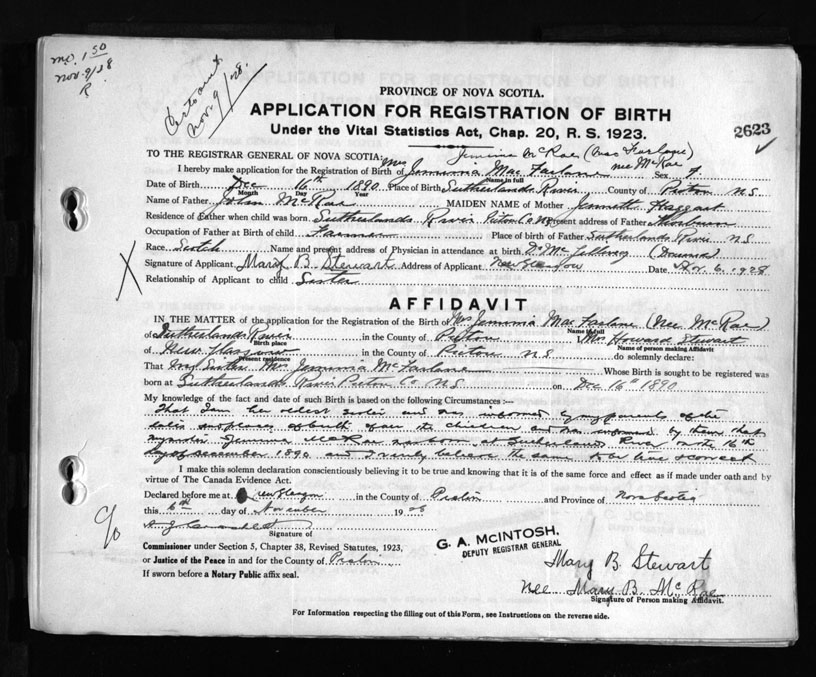 Nov. 9/28
Nov 9/28.
PROVINCE OF NOVA SCOTIA.
APPLICATION FOR REGISTRATION OF BIRTH
Under the Vital Statistics Act, Chap. 20, R. S. 1923.
2623
Jemima McRae (Mac Farlane)
TO THE REGISTRAR GENERAL OF NOVA SCOTIA: Mrs nee McRae
I hereby make application for the Registration of Birth of Jemima Mac Farlane Sex F.
Name in full
Date of Birth Dec 16th 1890 Place of Birth Sutherlands River County of Pictou N.S.
Month Day Year
Name of Father John McRae MAIDEN NAME of Mother Jennett Haggart
Residence of Father when child was born. Sutherlands River Pictou Co NS Present address of Father Thorburn
Occupation of Father at Birth of child Farmer Place of birth of Father Sutherlands River NS
Race. Scotch Name and present address of Physician in attendance at birth. Dr Mc (Deceased)
Signature of Applicant Mary B. Stewart Address of Applicant. New Glasgow Date, Nov. 6. 1928
Relationship of Applicant to child Sister
AFFIDAVIT
IN THE MATTER of the application for the Registration of the Birth of Mrs Jemimia Mac Farlane (Nee McRae)
Name in full
of Sutherlands River in the County of Pictou Mrs Howard Stewart
Birth place Name of person making Affidavit
of New Glasgow in the County of Pictou N S do solemnly declare:
Present residence
That my Sister Mrs Jemimia McFarlane Whose Birth is sought to be registered was
born at Sutherlands River Pictou Co NS on Dec 16th 1890
My knowledge of the fact and date of such Birth is based on the following Circumstances :—
That I am her oldest sister and was informed by my parents of the
dates and places of birth of all the children and was informed by them that
my sister Jemima McRae was born at Sutherlands River on the 16th
day of December 1890 and I verily believe the same to be true & correct
I make this solemn declaration conscientiously believing it to be true and knowing that it is of the same force and effect as if made under oath and by
virtue of The Canada Evidence Act.
Declared before me at New Glasgow in the County of Pictou and Province of Nova Scotia
this 6th day of November 1928
Signature of
Commissioner under Section 5, Chapter 38, Revised Statutes, 1923,
or Justice of the Peace in and for the County of Pictou
If sworn before a Notary Public affix seal.
G. A. McINTOSH,
DEPUTY REGISTRAR GENERAL
Mary B. Stewart
Nee Mary B. McRae
Signature of Person making Affidavit.
For Information respecting the filling out of this Form, see Instructions on the reverse side.